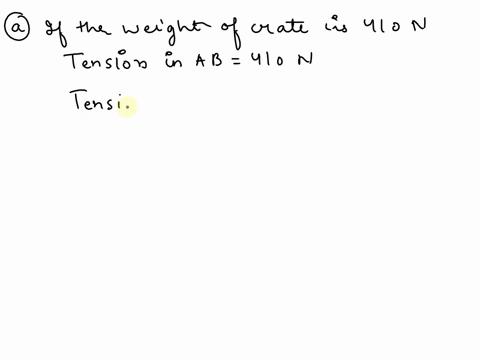 (a) If the weight of crate is 410 N
Tension in AB = 410 N
Tensi